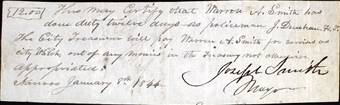 $12.50 This May Certify that Warren A. Smith has
done duty twelve days as policeman J. Dunham, H. P.
The City Treasurer will pay Warren A. Smith for services as
city Watch out of any monies in the Treasury not otherwise
appropriated.
Nauvoo January 8th 1844. Joseph Smith
Mayor